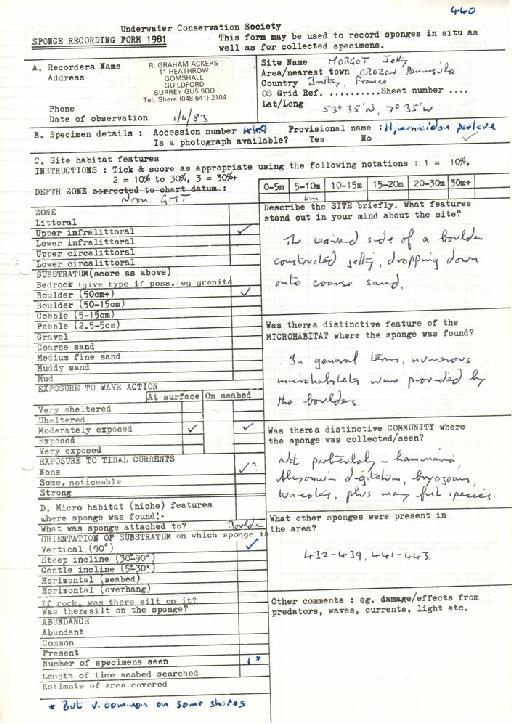 440
Underwater Conservation Society
SPONGE RECORDING FORM 1981
This form may be used to record sponges in situ as well as for collected specimens.
A. Recorders Name
Address
B. GRAHAM ACKERS
11 HEATHROW
GOMSHALL
GUILDFORD
SURREY GU5 9QD
Tel. Shere (048 641) 2104
Phone
Date of observation 1/6/83
Site Name MORGAT Jetty
Area/nearest town CROZON Peninsula
Country Brittany, France
OS Grid Ref. .......... Sheet number ....
Lat/Long
B. Specimen details : Accession number 440 Provisional name :
Is a photograph available? Yes No
C. Site habitat features
INSTRUCTIONS : Tick & score as appropriate using the following notations : 1 = 10%,
2 = 10% to 30%, 3 = 30%+
DEPTH ZONE corrected to chart datum.:
Noon GMT
0-5m 5-10m 10-15m 15-20m 20-30m 30m+
ZONE
Littoral
Upper infralittoral ✓
Lower infralittoral
Upper circalittoral
Lower circalittoral
SUBSTRATUM (score as above)
Bedrock (give type if poss. eg granite
Boulder (50cm+) ✓
Boulder (50-15cm)
Cobble (5-15cm)
Pebble (2.5-5cm)
Gravel
Coarse sand
Medium fine sand
Muddy sand
Mud
EXPOSURE TO WAVE ACTION
At surface On seabed
Very sheltered
Sheltered
Moderately exposed ✓ ✓
Exposed
Very exposed
EXPOSURE TO TIDAL CURRENTS
None ✓?
Some, noticeable
Strong
D. Micro habitat (niche) features
where sponge was found:-
What was sponge attached to? Boulder
ORIENTATION OF SUBSTRATUM on which sponge is
Vertical (90°) ✓
Steep incline (30-90°)
Gentle incline (5-30°)
Horizontal (seabed)
Horizontal (overhang)
If rock, was there silt on it?
Was there silt on the sponge?
ABUNDANCE
Abundant
Common
Present
Number of specimens seen 1*
Length of time seabed searched
Estimate of area covered
* But v. common on some shores
Describe the SITE briefly. What features
stand out in your mind about the site?
The seaward side of a boulder
constructed jetty, dropping down
onto coarse sand.
Was there a distinctive feature of the
MICROHABITAT where the sponge was found?
In general terms, numerous
microhabitats were provided by
the boulders.
Was there a distinctive COMMUNITY where
the sponge was collected/seen?
Not particularly - laminaria,
Alcyonium digitatum, bryozoans,
tunicates, plus many fish species.
What other sponges were present in
the area?
432-439, 441-443.
Other comments : eg. damage/effects from
predators, waves, currents, light etc.